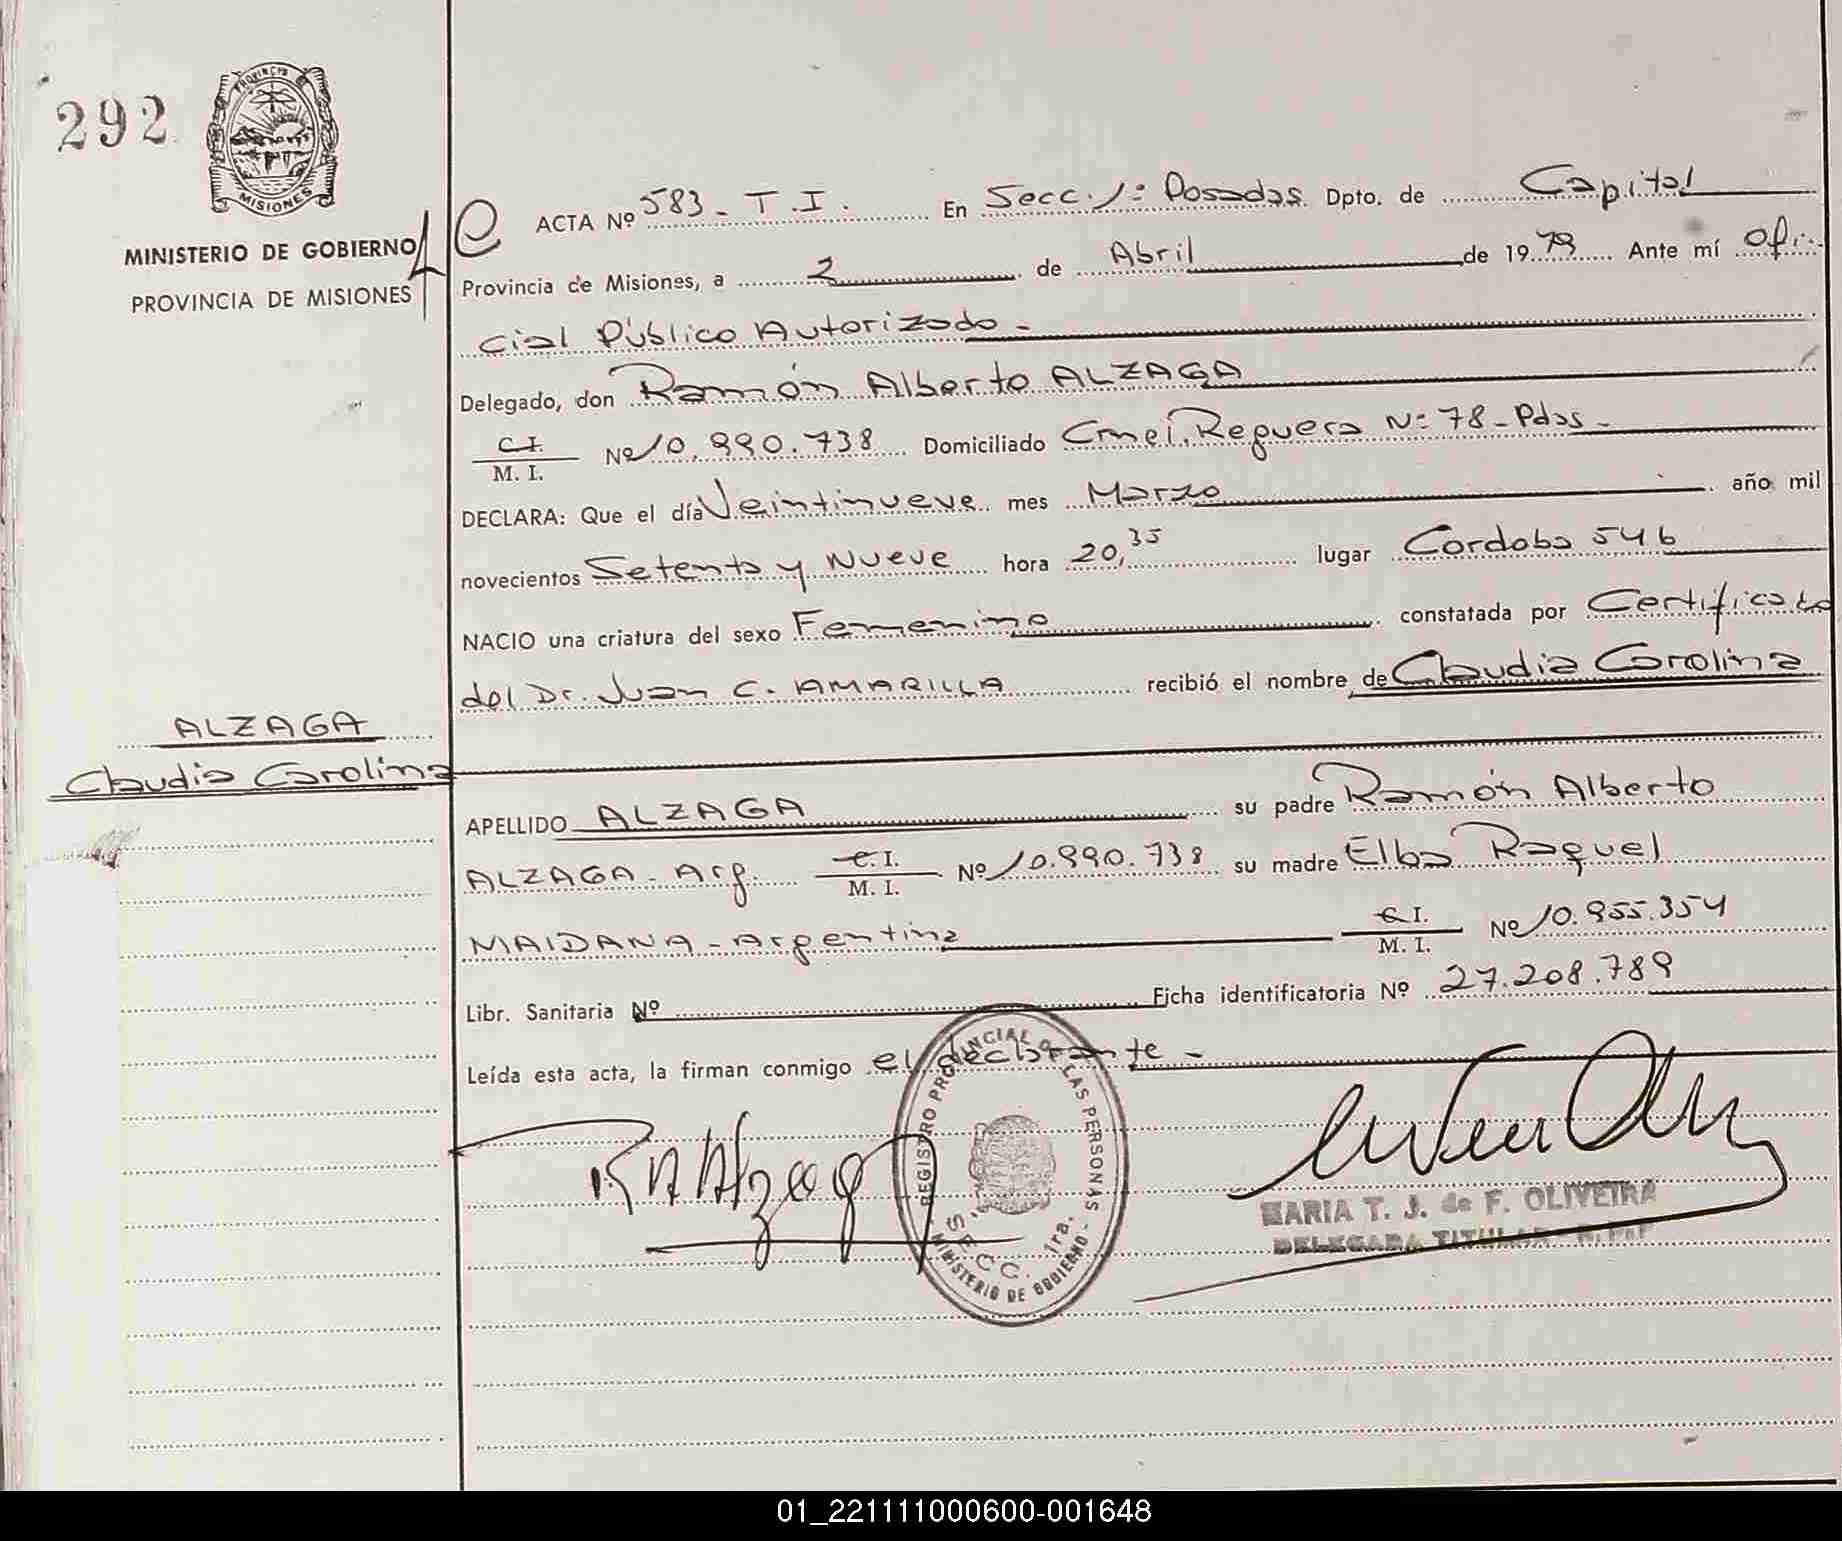 292
PROVINCIA
MISIONES
MINISTERIO DE GOBIERNO
PROVINCIA DE MISIONES
ACTA Nº 583 - T.I. En Secc. 1ª Posadas Dpto. de Capital
Provincia de Misiones, a 2 de Abril de 1979 Ante mí Ofi-
cial Público Autorizado -
Delegado, don Ramón Alberto ALZAGA
C.I.
M. I. Nº 10.990.738 Domiciliado Cnel. Reguera Nº 78 - Pdas -
DECLARA: Que el día Veintinueve mes Marzo año mil
novecientos Setenta y Nueve hora 20,35 lugar Cordoba 546
NACIO una criatura del sexo Femenino constatada por Certificado
del Dr. Juan C. AMARILLA recibió el nombre de Claudia Carolina
ALZAGA
Claudia Carolina
APELLIDO ALZAGA su padre Ramón Alberto
ALZAGA - Arg. C.I. M. I. Nº 10.990.738 su madre Elba Raquel
MAIDANA - Argentina C.I. M. I. Nº 10.955.354
Libr. Sanitaria Nº Ficha identificatoria Nº 27.208.789
Leída esta acta, la firman conmigo el declarante -
RA Alzaga
REGISTRO PROVINCIAL D LAS PERSONAS
SECC. 1ra.
MINISTERIO DE GOBIERNO -
MARIA T. J. de F. OLIVEIRA
DELEGADA TITULAR
01_221111000600-001648